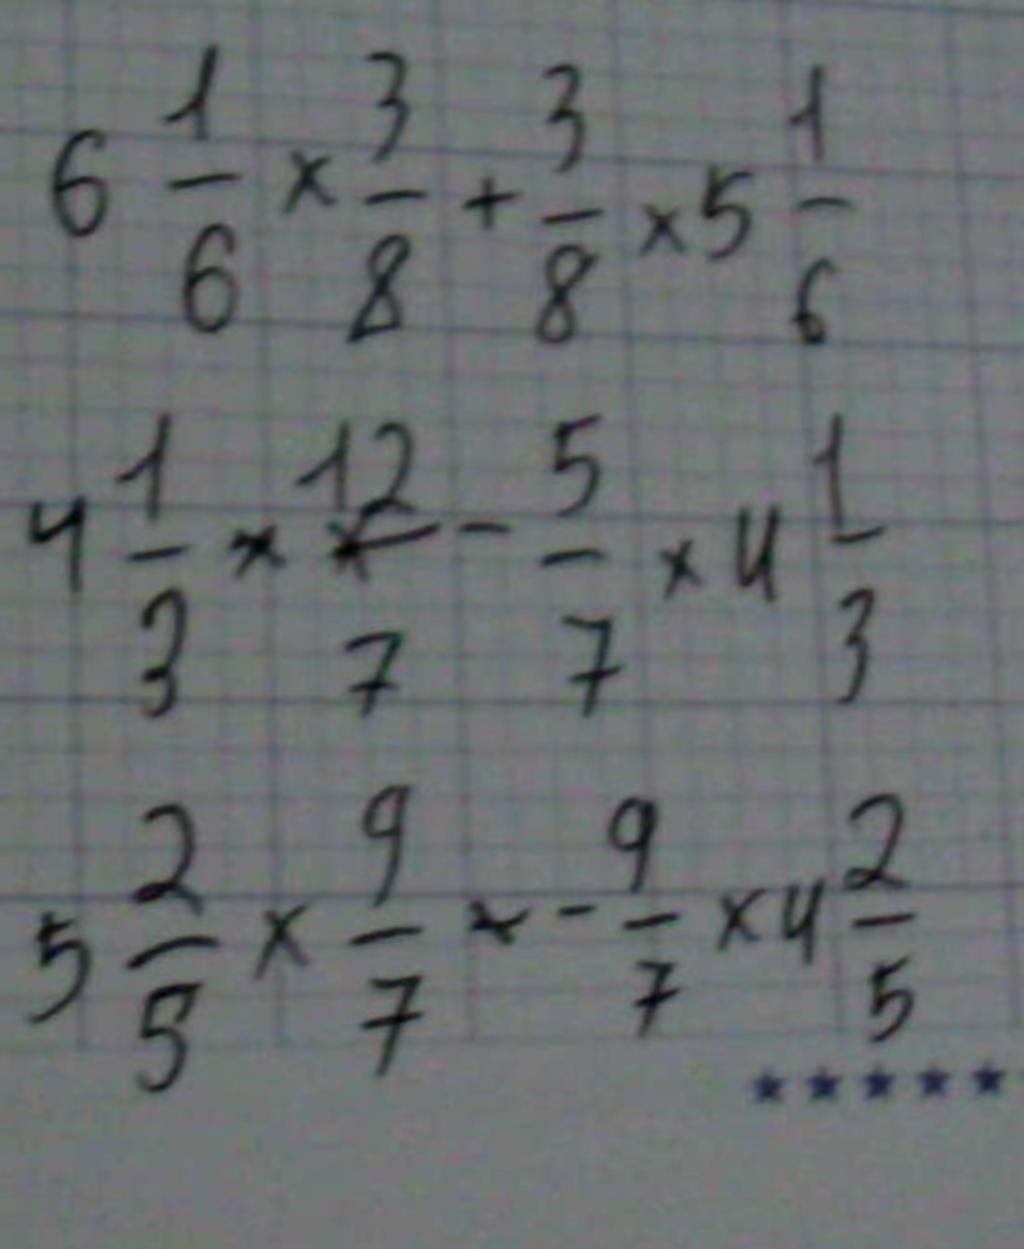 6 1/6 × 3/8 + 3/8 × 5 1/6
4 1/3 × 12/7 - 5/7 × 4 1/3
5 2/5 × 9/7 - 9/7 × 4 2/5
★★★★★